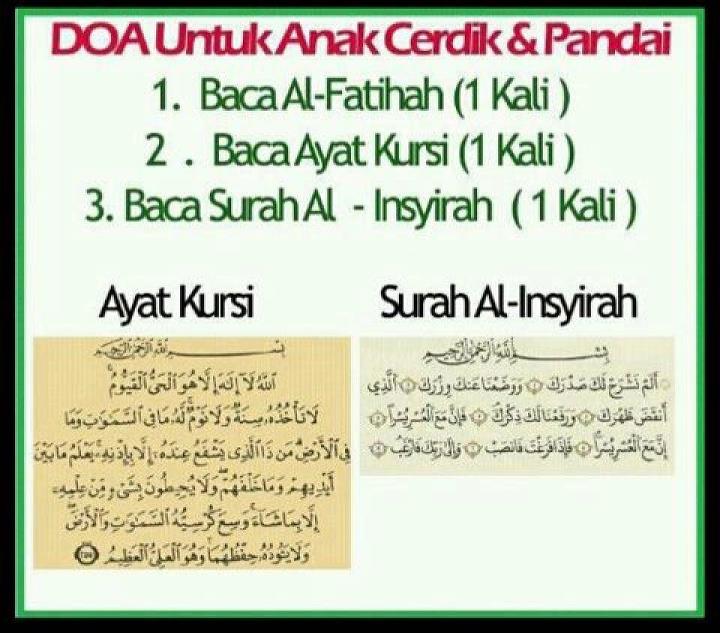 DOA Untuk Anak Cerdik & Pandai
1. Baca Al-Fatihah (1 Kali )
2 . Baca Ayat Kursi (1 Kali )
3. Baca Surah Al - Insyirah ( 1 Kali )
Ayat Kursi
بِسْمِ اللَّهِ الرَّحْمَٰنِ الرَّحِيمِ
اللَّهُ لَا إِلَٰهَ إِلَّا هُوَ الْحَيُّ الْقَيُّومُ
لَا تَأْخُذُهُ سِنَةٌ وَلَا نَوْمٌ لَهُ مَا فِي السَّمَٰوَٰتِ وَمَا
فِي الْأَرْضِ مَنْ ذَا الَّذِي يَشْفَعُ عِنْدَهُ إِلَّا بِإِذْنِهِ يَعْلَمُ مَا بَيْنَ
أَيْدِيهِمْ وَمَا خَلْفَهُمْ وَلَا يُحِيطُونَ بِشَيْءٍ مِنْ عِلْمِهِ
إِلَّا بِمَا شَاءَ وَسِعَ كُرْسِيُّهُ السَّمَٰوَٰتِ وَالْأَرْضَ
وَلَا يَئُودُهُ حِفْظُهُمَا وَهُوَ الْعَلِيُّ الْعَظِيمُ ٢٥٥
Surah Al-Insyirah
بِسْمِ اللَّهِ الرَّحْمَٰنِ الرَّحِيمِ
أَلَمْ نَشْرَحْ لَكَ صَدْرَكَ ١ وَوَضَعْنَا عَنْكَ وِزْرَكَ ٢ الَّذِي
أَنْقَضَ ظَهْرَكَ ٣ وَرَفَعْنَا لَكَ ذِكْرَكَ ٤ فَإِنَّ مَعَ الْعُسْرِ يُسْرًا ٥
إِنَّ مَعَ الْعُسْرِ يُسْرًا ٦ فَإِذَا فَرَغْتَ فَانْصَبْ ٧ وَإِلَىٰ رَبِّكَ فَارْغَبْ ٨